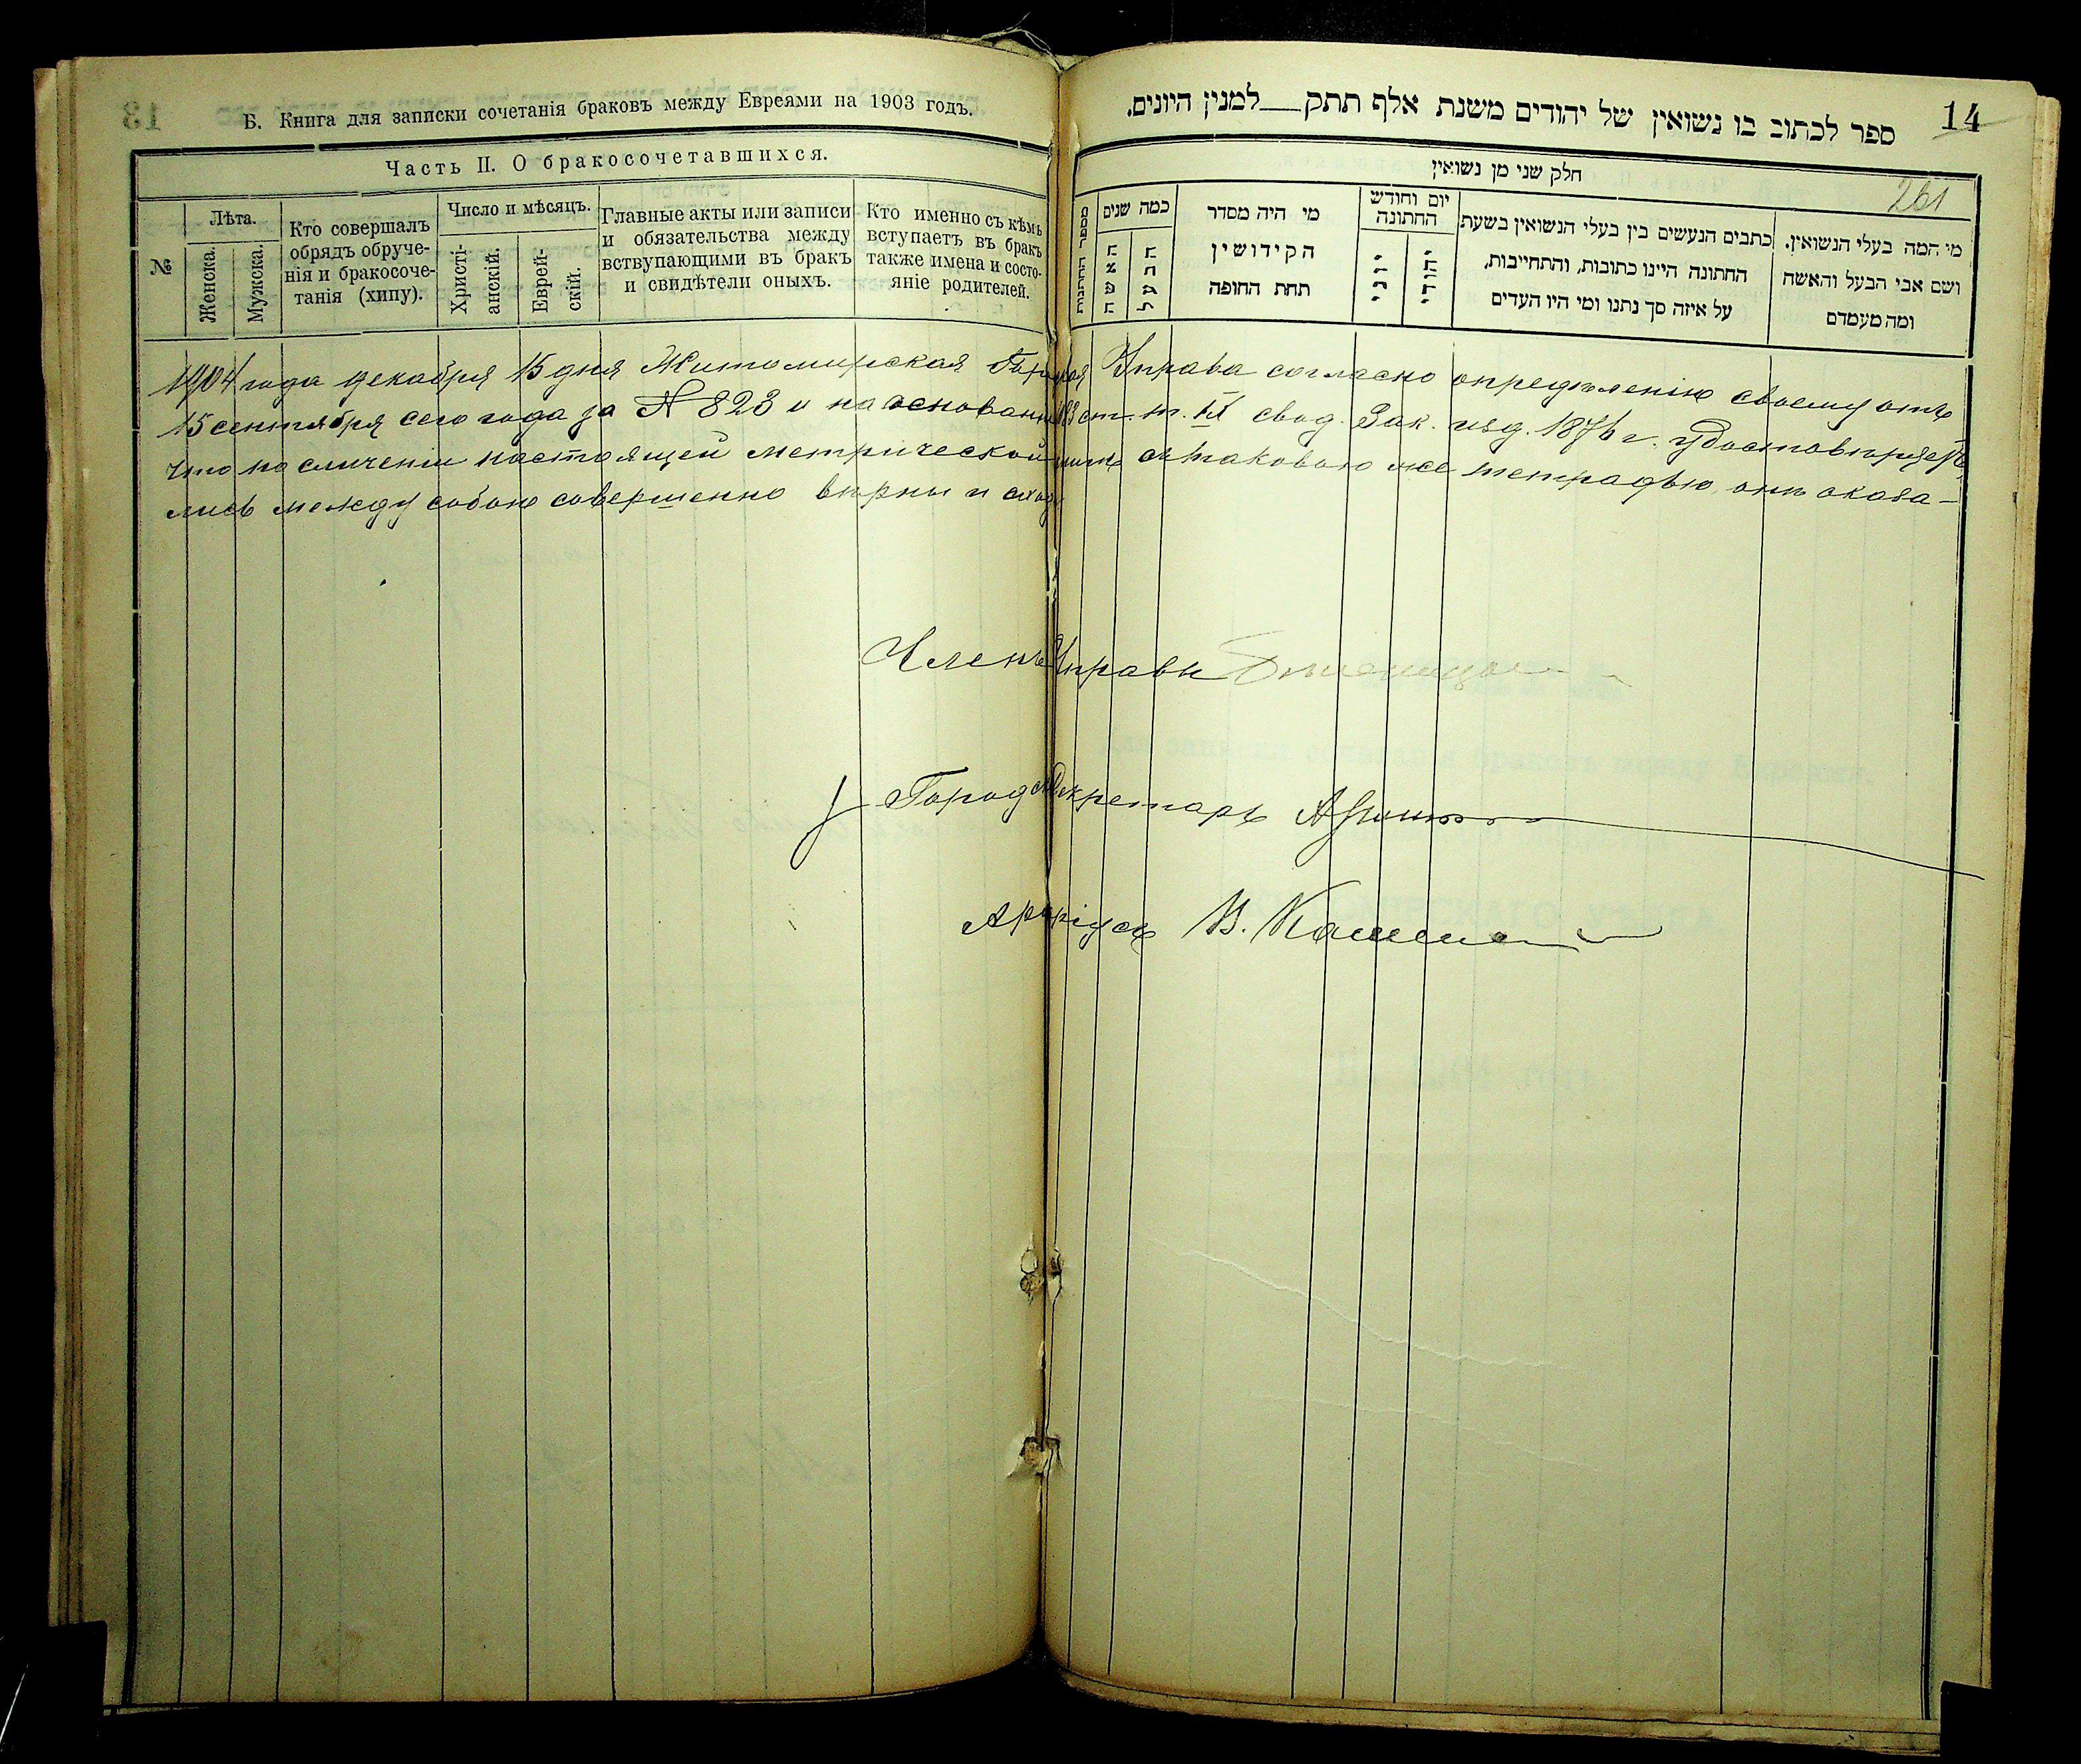 Б. Книга для записки сочетанія браковъ между Евреями на 1903 годъ.
Часть II. О бракосочетавшихся.
№
Лѣта.
Женска.
Мужска.
Кто совершалъ
обрядъ обруче-
нія и бракосоче-
танія (хипу).
Число и мѣсяцъ.
Христі-
анскій.
Еврей-
скій.
Главные акты или записи
и обязательства между
вствупающими въ бракъ
и свидѣтели оныхъ.
Кто именно съ кѣмъ
вступаетъ въ бракъ
также имена и состо-
яніе родителей.
14
ספר לכתוב בו נשואין של יהודים משנת אלף תתק למנין היונים.
חלק שני מן נשואין
261
מספר החתונות
כמה שנים
האשה
הבעל
מי היה מסדר
הקידושין
תחת החופה
יום וחודש
החתונה
יוני
יהודי
כתבים הנעשים בין בעלי הנשואין בשעת
החתונה היינו כתובות, והתחייבות,
על איזה סך נתנו ומי היו העדים
מי המה בעלי הנשואין.
ושם אבי הבעל והאשה
ומה מעמדם
1904 года декабря 15 дня Житомирская Управа согласно опредѣленію своему отъ
15 сентября сего года за № 823 и на основаніи ст. т. IX свод. Зак. изд. 1876 г. удостовѣряетъ
что по сличеніи настоящей метрической съ таковою же тетрадью онѣ оказа-
лись между собою совершенно вѣрны и
Членъ Управы
Секретарь
В.